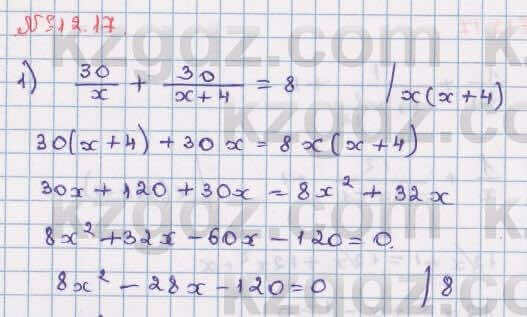 № 12.17.
1) 30/x + 30/(x+4) = 8 / x(x+4)
30(x+4) + 30x = 8x(x+4)
30x + 120 + 30x = 8x² + 32x
8x² + 32x - 60x - 120 = 0.
8x² - 28x - 120 = 0 / 8
kzgdz.com